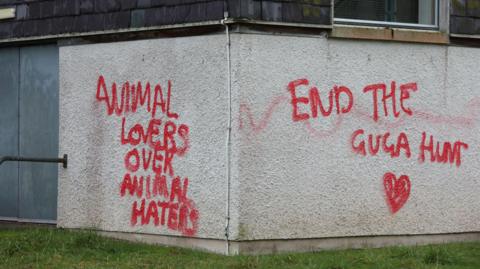 ANIMAL
LOVERS
OVER
ANIMAL
HATERS
END THE
GUGA HUNT